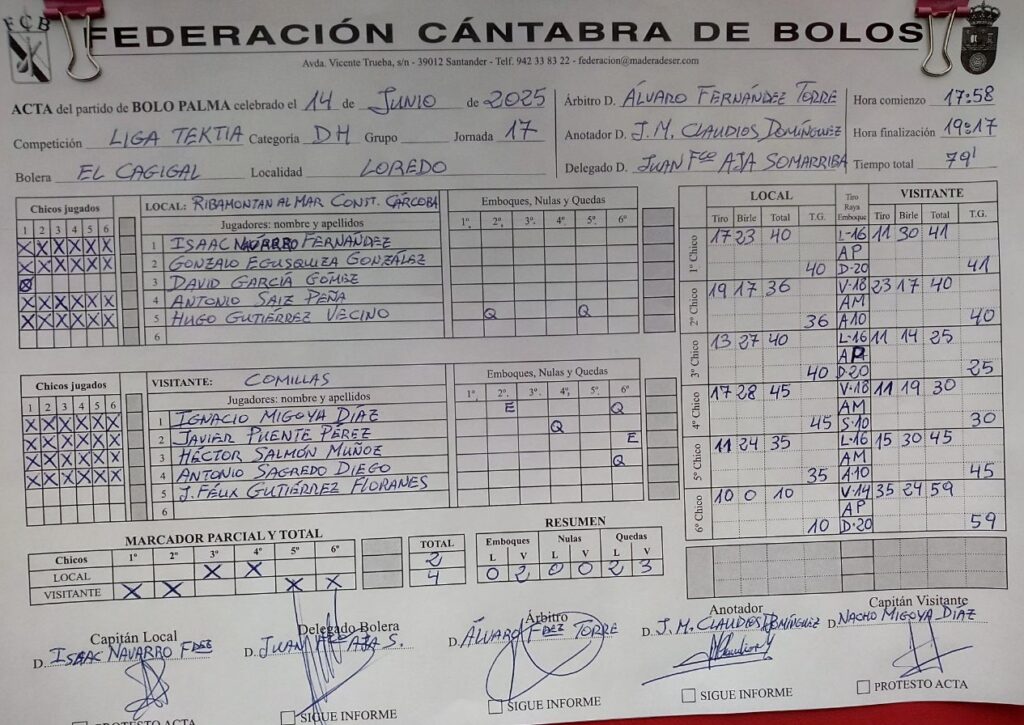 FCB
FEDERACIÓN CÁNTABRA DE BOLOS
Avda. Vicente Trueba, s/n - 39012 Santander - Telf. 942 33 83 22 - federacion@maderadeser.com
ACTA del partido de BOLO PALMA celebrado el 14 de JUNIO de 2025
Competición LIGA TEKTIA Categoría DH Grupo Jornada 17
Bolera EL CAGIGAL Localidad LOREDO
Árbitro D. ÁLVARO FERNÁNDEZ TORRE
Anotador D. J.M. CLAUDIOS DOMÍNGUEZ
Delegado D. JUAN Fco AJA SOMARRIBA
Hora comienzo 17:58
Hora finalización 19:17
Tiempo total 79'
Chicos jugados LOCAL: RIBAMONTAN AL MAR CONST. CÁRCOBA Emboques, Nulas y Quedas
1 2 3 4 5 6 Jugadores: nombre y apellidos 1º. 2º. 3º. 4º. 5º. 6º
X X X X X X 1 ISAAC NAVARRO FERNÁNDEZ
X X X X X X 2 GONZALO EGUSQUIZA GONZÁLEZ
3 DAVID GARCÍA GÓMEZ
X X X X X X 4 ANTONIO SAIZ PEÑA
X X X X X X 5 HUGO GUTIÉRREZ VECINO Q Q
6
Chicos jugados VISITANTE: COMILLAS Emboques, Nulas y Quedas
1 2 3 4 5 6 Jugadores: nombre y apellidos 1º. 2º. 3º. 4º. 5º. 6º
X X X X X X 1 IGNACIO MIGOYA DIAZ E Q
X X X X X X 2 JAVIER PUENTE PÉREZ Q
X X X X X X 3 HÉCTOR SALMÓN MUÑOZ E
X X X X X X 4 ANTONIO SAGREDO DIEGO Q
5 J. FÉLIX GUTIÉRREZ FLORANES
6
LOCAL Tiro Raya Emboque VISITANTE
Tiro Birle Total T.G. Tiro Birle Total T.G.
1º Chico 17 23 40 L-16 11 30 41
AP
40 D-20 41
2º Chico 19 17 36 V-18 23 17 40
AM
36 A10 40
3º Chico 13 27 40 L-16 11 14 25
AP
40 D-20 25
4º Chico 17 28 45 V-18 11 19 30
AM
45 S-10 30
5º Chico 11 24 35 L-16 15 30 45
AM
35 A-10 45
6º Chico 10 0 10 V-14 35 24 59
AP
10 D-20 59
MARCADOR PARCIAL Y TOTAL
Chicos 1º 2º 3º 4º 5º 6º TOTAL
LOCAL X X 2
VISITANTE X X X X 4
RESUMEN
Emboques Nulas Quedas
L V L V L V
0 2 0 0 2 3
Capitán Local
D. ISAAC NAVARRO FDEZ
PROTESTO ACTA
Delegado Bolera
D. JUAN Fco AJA S.
SIGUE INFORME
Árbitro
D. ÁLVARO FDEZ TORRE
SIGUE INFORME
Anotador
D. J.M. CLAUDIOS DOMÍNGUEZ
SIGUE INFORME
Capitán Visitante
D. NACHO MIGOYA DIAZ
PROTESTO ACTA